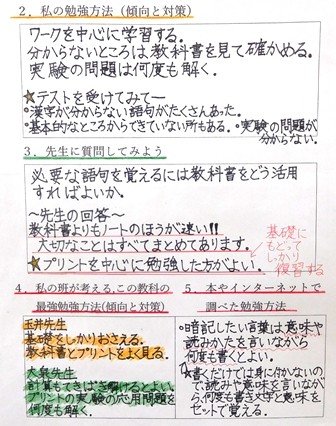 ２．私の勉強方法（傾向と対策）
ワークを中心に学習する。
分からないところは教科書を見て確かめる。
実験の問題は何度も解く。
★テストを受けてみてー
○漢字が分からない語句がたくさんあった。
○基本的なところからできていない所もある。○実験の問題が
分からない。
３．先生に質問してみよう
必要な語句を覚えるには教科書をどう活用
すればよいか。
～先生の回答～
教科書よりもノートのほうが速い!!
大切なことはすべてまとめてあります。
★プリントを中心に勉強した方がよい。
基礎に
もどって
しっかり
復習する
４．私の班が考える、この教科の
最強勉強方法(傾向と対策)
玉井先生
基礎をしっかりおさえる。
教科書とプリントをよく見る。
大泉先生
計算もてきぱき解けるとよい。
プリントの実験の応用問題を
何度も解く。
５．本やインターネットで
調べた勉強方法
○暗記したい言葉は意味や
読みかたを言いながら
何度も書くとよい。
★書くだけでは身に付かないの
で、読みや意味を言いなが
ら、何度も書き文字と意味を
セットで覚える。